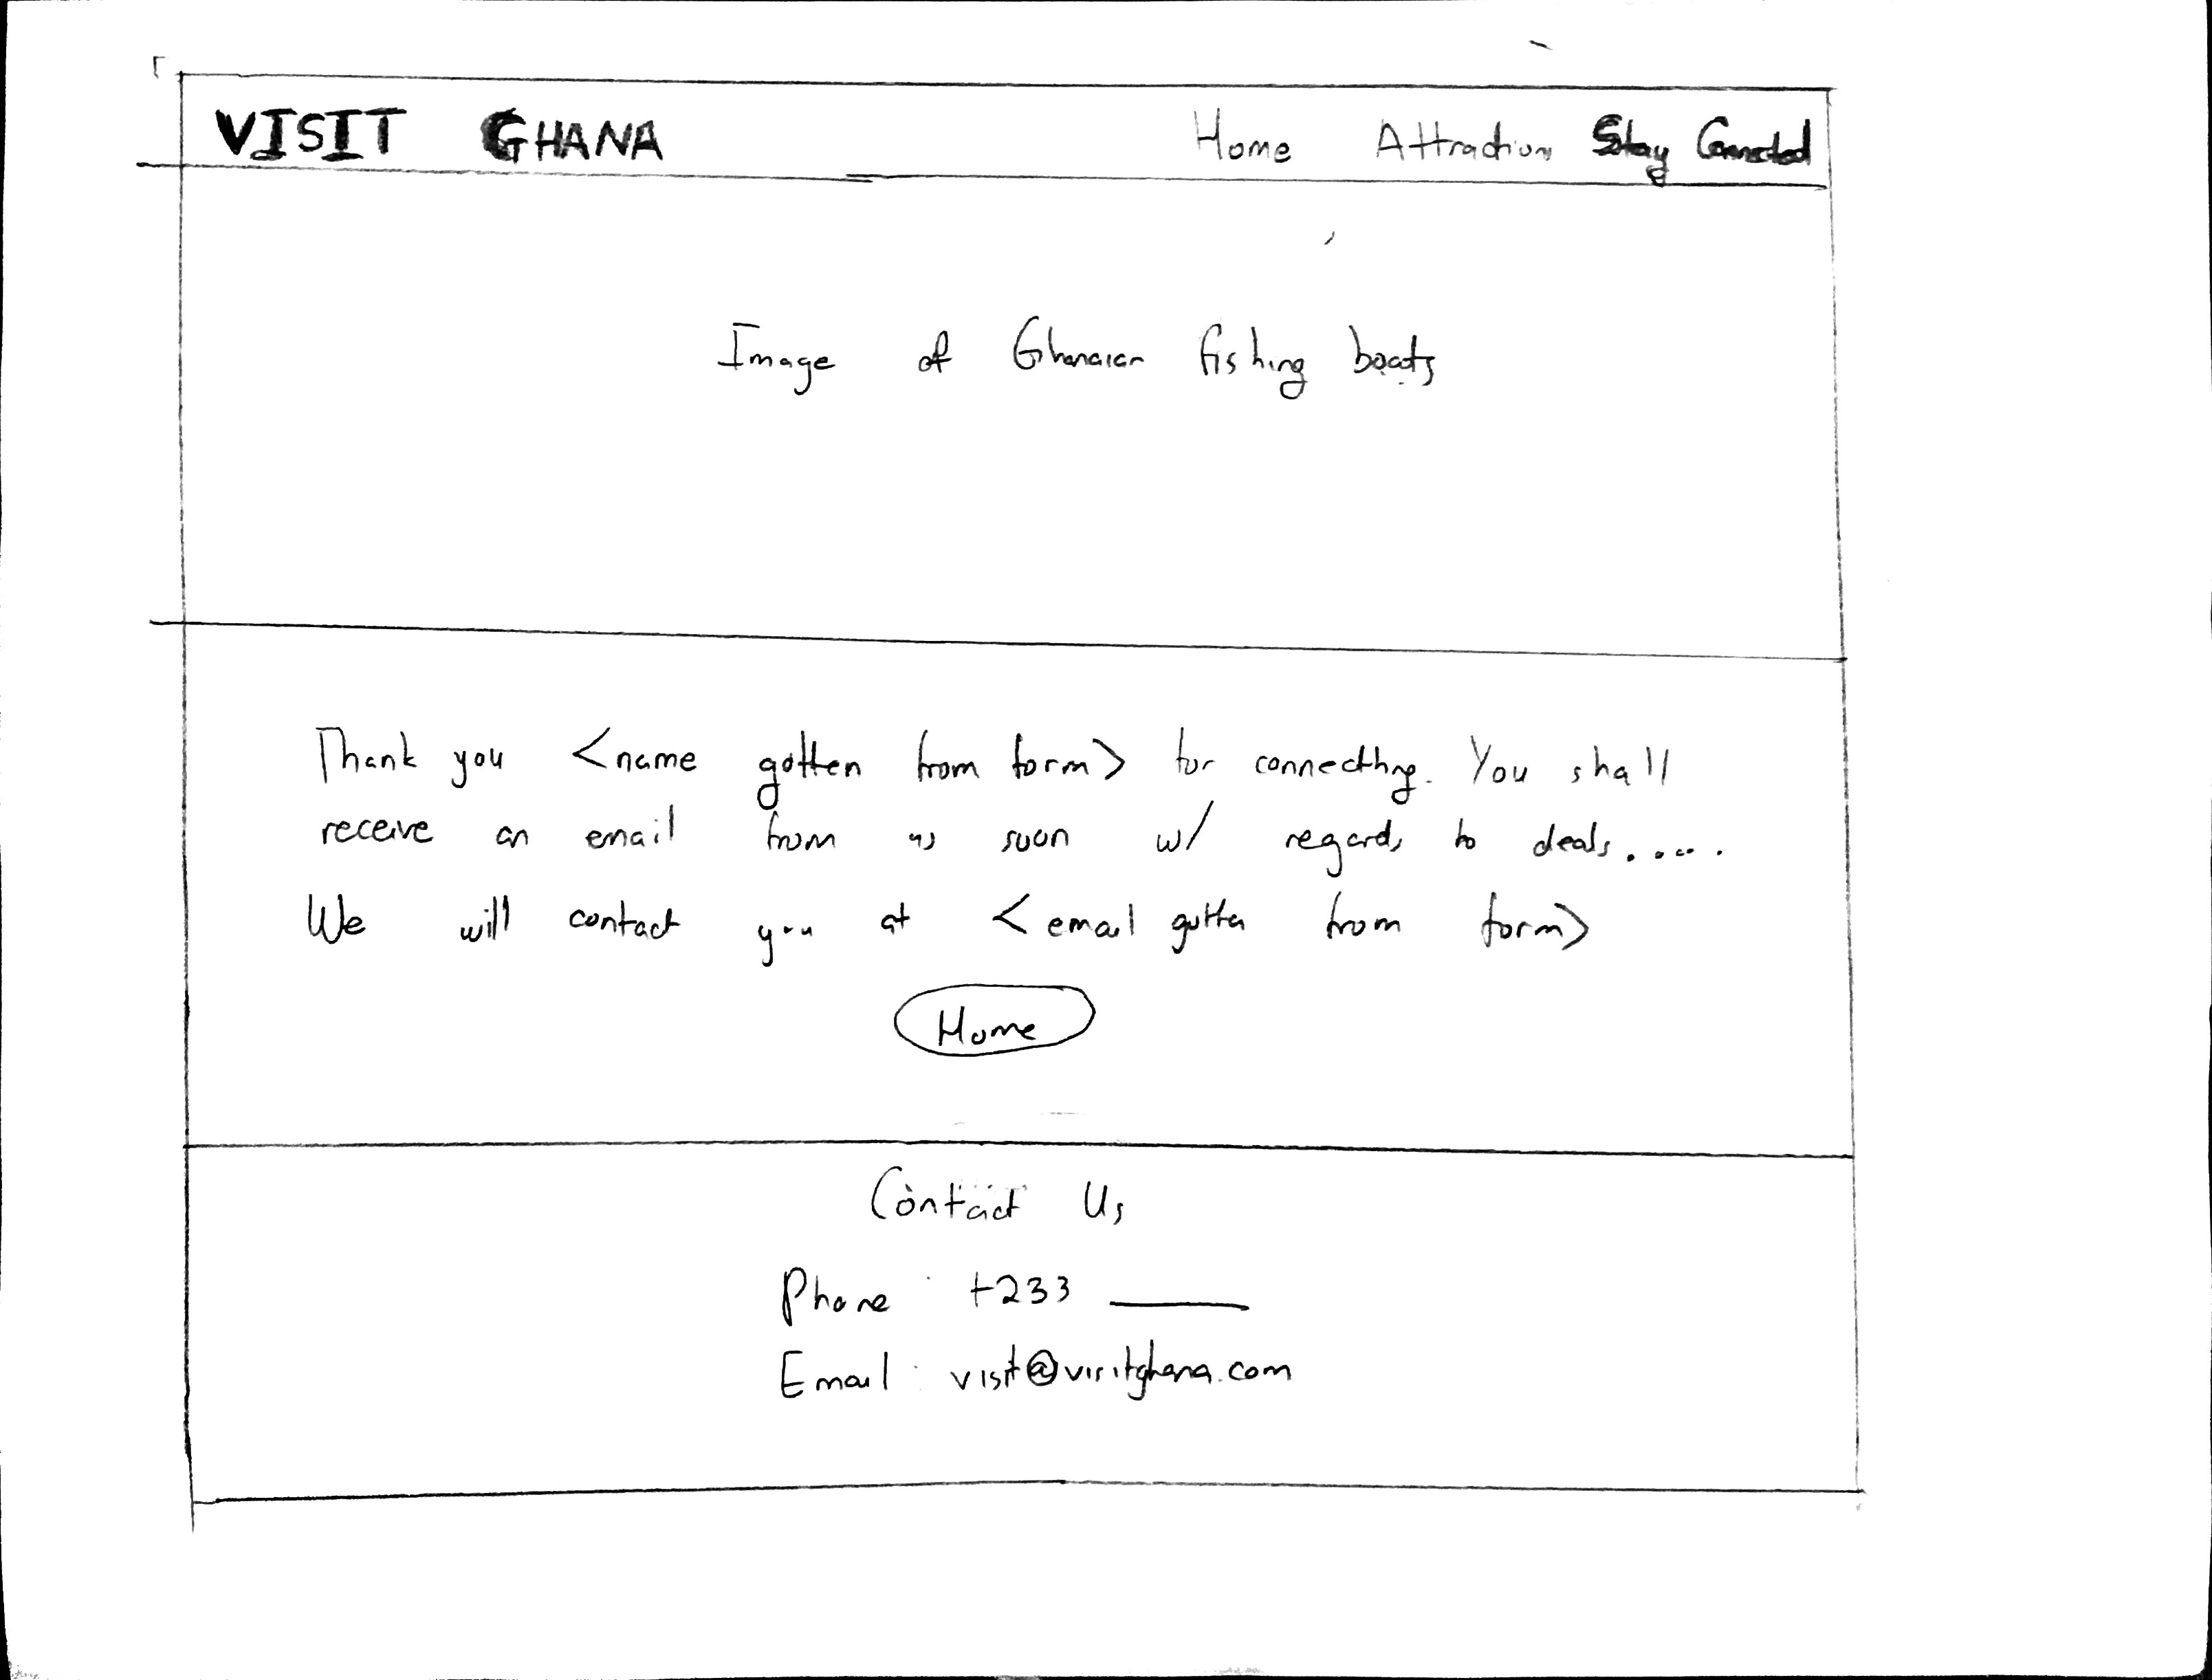 VISIT GHANA
Home Attractions Stay Connected
Image of Ghanaian fishing boats
Thank you <name gotten from form> for connecting. You shall
receive an email from us soon w/ regards to deals.....
We will contact you at <email gotten from form>
Home
Contact Us
Phone : +233 ____
Email : visit@visitghana.com